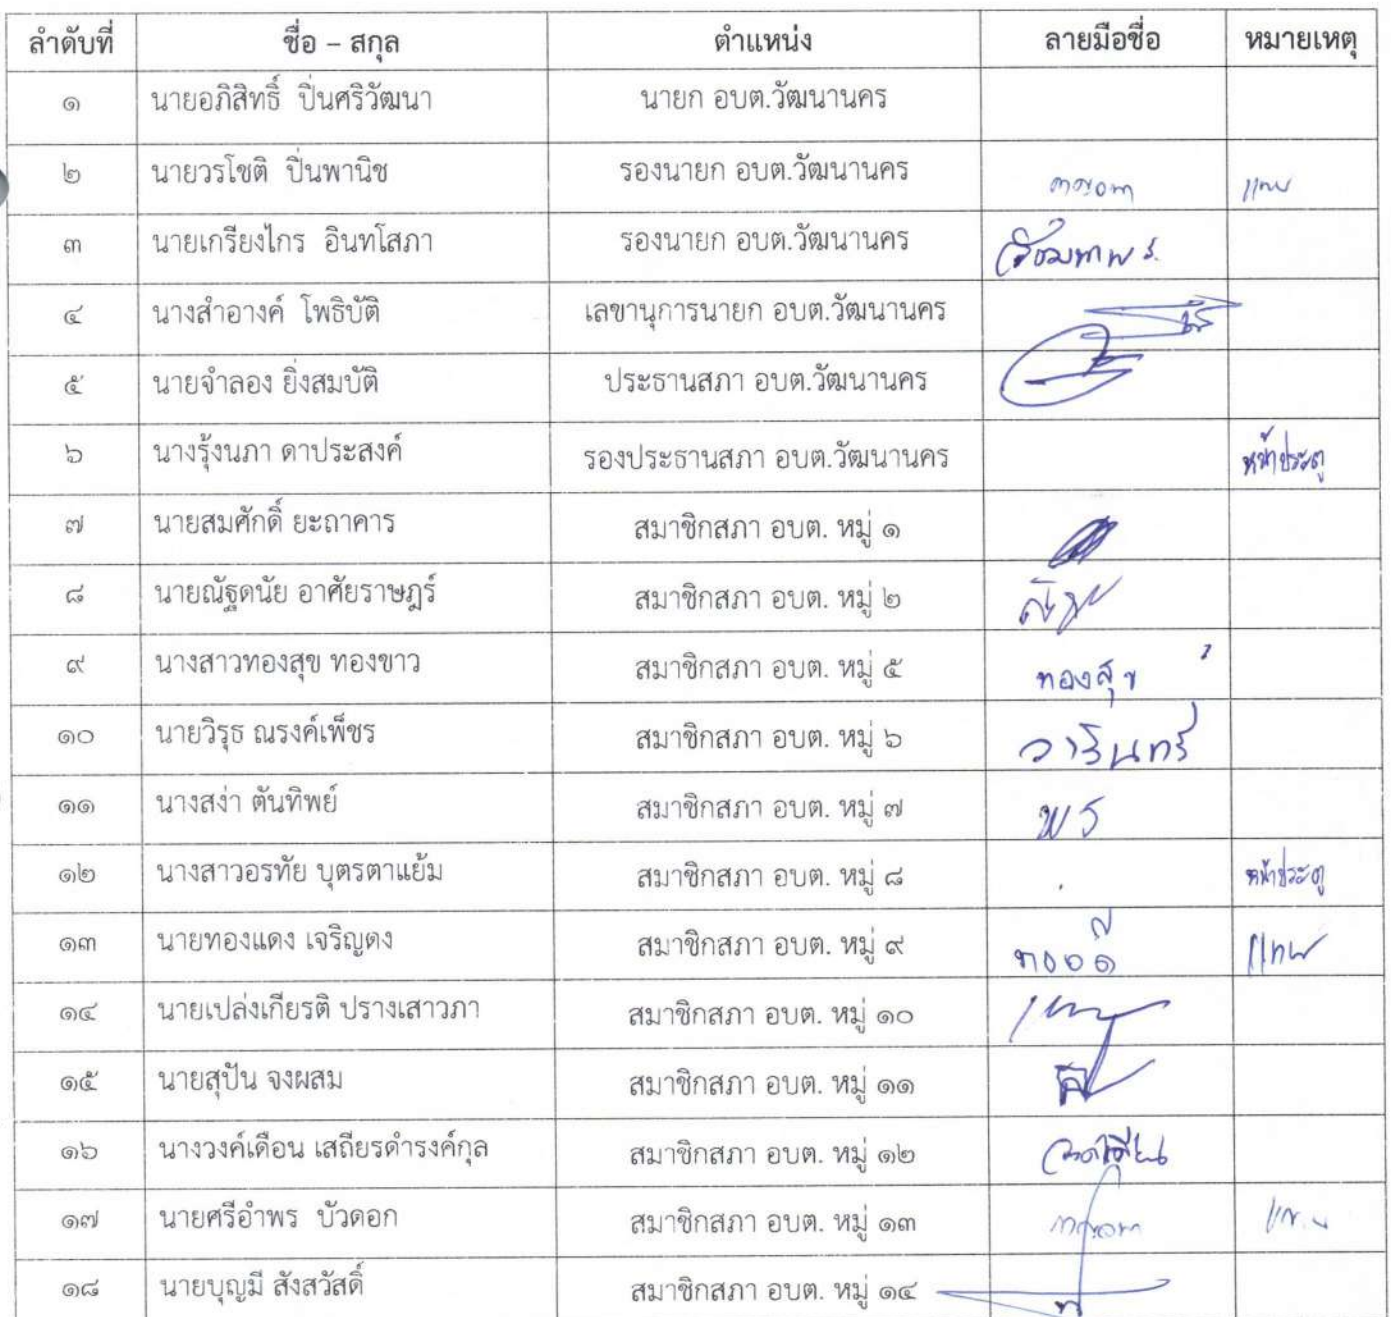 ลำดับที่ ชื่อ – สกุล ตำแหน่ง ลายมือชื่อ หมายเหตุ
๑ นายอภิสิทธิ์ ปิ่นศริวัฒนา นายก อบต.วัฒนานคร
๒ นายวรโชติ ปิ่นพานิช รองนายก อบต.วัฒนานคร แทน
๓ นายเกรียงไกร อินทโสภา รองนายก อบต.วัฒนานคร
๔ นางสำอางค์ โพธิบัติ เลขานุการนายก อบต.วัฒนานคร
๕ นายจำลอง ยิ่งสมบัติ ประธานสภา อบต.วัฒนานคร
๖ นางรุ้งนภา ดาประสงค์ รองประธานสภา อบต.วัฒนานคร หน้าประตู
๗ นายสมศักดิ์ ยะถาคาร สมาชิกสภา อบต. หมู่ ๑
๘ นายณัฐดนัย อาศัยราษฎร์ สมาชิกสภา อบต. หมู่ ๒
๙ นางสาวทองสุข ทองขาว สมาชิกสภา อบต. หมู่ ๕ ทองสุข
๑๐ นายวิรุธ ณรงค์เพ็ชร สมาชิกสภา อบต. หมู่ ๖ วารินทร์
๑๑ นางสง่า ตันทิพย์ สมาชิกสภา อบต. หมู่ ๗ พร
๑๒ นางสาวอรทัย บุตรตาแย้ม สมาชิกสภา อบต. หมู่ ๘ หน้าประตู
๑๓ นายทองแดง เจริญดง สมาชิกสภา อบต. หมู่ ๙ แทน
๑๔ นายเปล่งเกียรติ ปรางเสาวภา สมาชิกสภา อบต. หมู่ ๑๐
๑๕ นายสุปัน จงผสม สมาชิกสภา อบต. หมู่ ๑๑
๑๖ นางวงค์เดือน เสถียรดำรงค์กุล สมาชิกสภา อบต. หมู่ ๑๒
๑๗ นายศรีอำพร บัวดอก สมาชิกสภา อบต. หมู่ ๑๓ แทน
๑๘ นายบุญมี สังสวัสดิ์ สมาชิกสภา อบต. หมู่ ๑๔